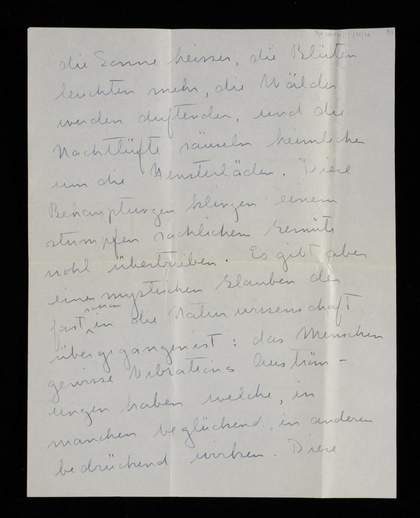 die Sonne heisser, die Blüten
leuchten mehr, die Wälder
werden duftender, und die
Nachtlüfte säuseln heimlicher
um die Fensterläden. Diese
Behauptungen klingen einem
stumpfen sachlichen Gemüt
wohl übertrieben. Es gibt aber
einen mystischen Glauben der
fast in die Naturwissenschaft
übergegangen ist: das Menschen
gewisse Vibrations Ausström-
ungen haben welche, in
manchen beglückend, in anderen
bedrückend wirken. Diese